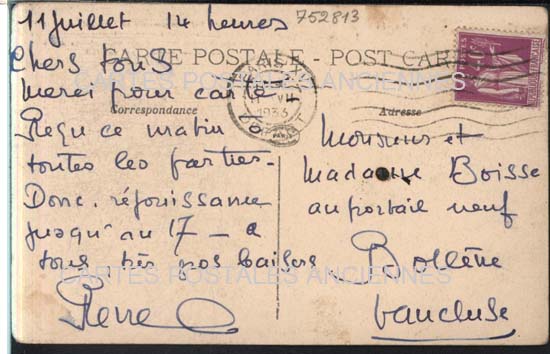 11 juillet 14 heures
752813
CARTE POSTALE - POST CARD
Chers tous
CARTES POSTALES ANCIENNES
Merci pour carte
Correspondance
Adresse
1933
PARIS
Reçu ce matin
toutes les parties-
Donc, réjouissance
jusqu'au 17 - a
tous, très gros baisers
Pierre
Monsieur et
Madame Boisse
au portail neuf
Bollène
Vaucluse
CARTES POSTALES ANCIENNES